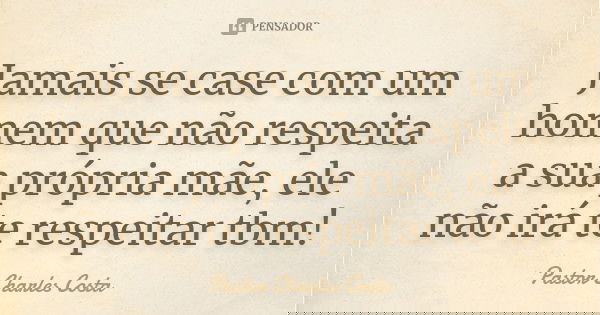 PENSADOR
Jamais se case com um
homem que não respeita
a sua própria mãe, ele
não irá te respeitar tbm!
Pastor Charles Costa